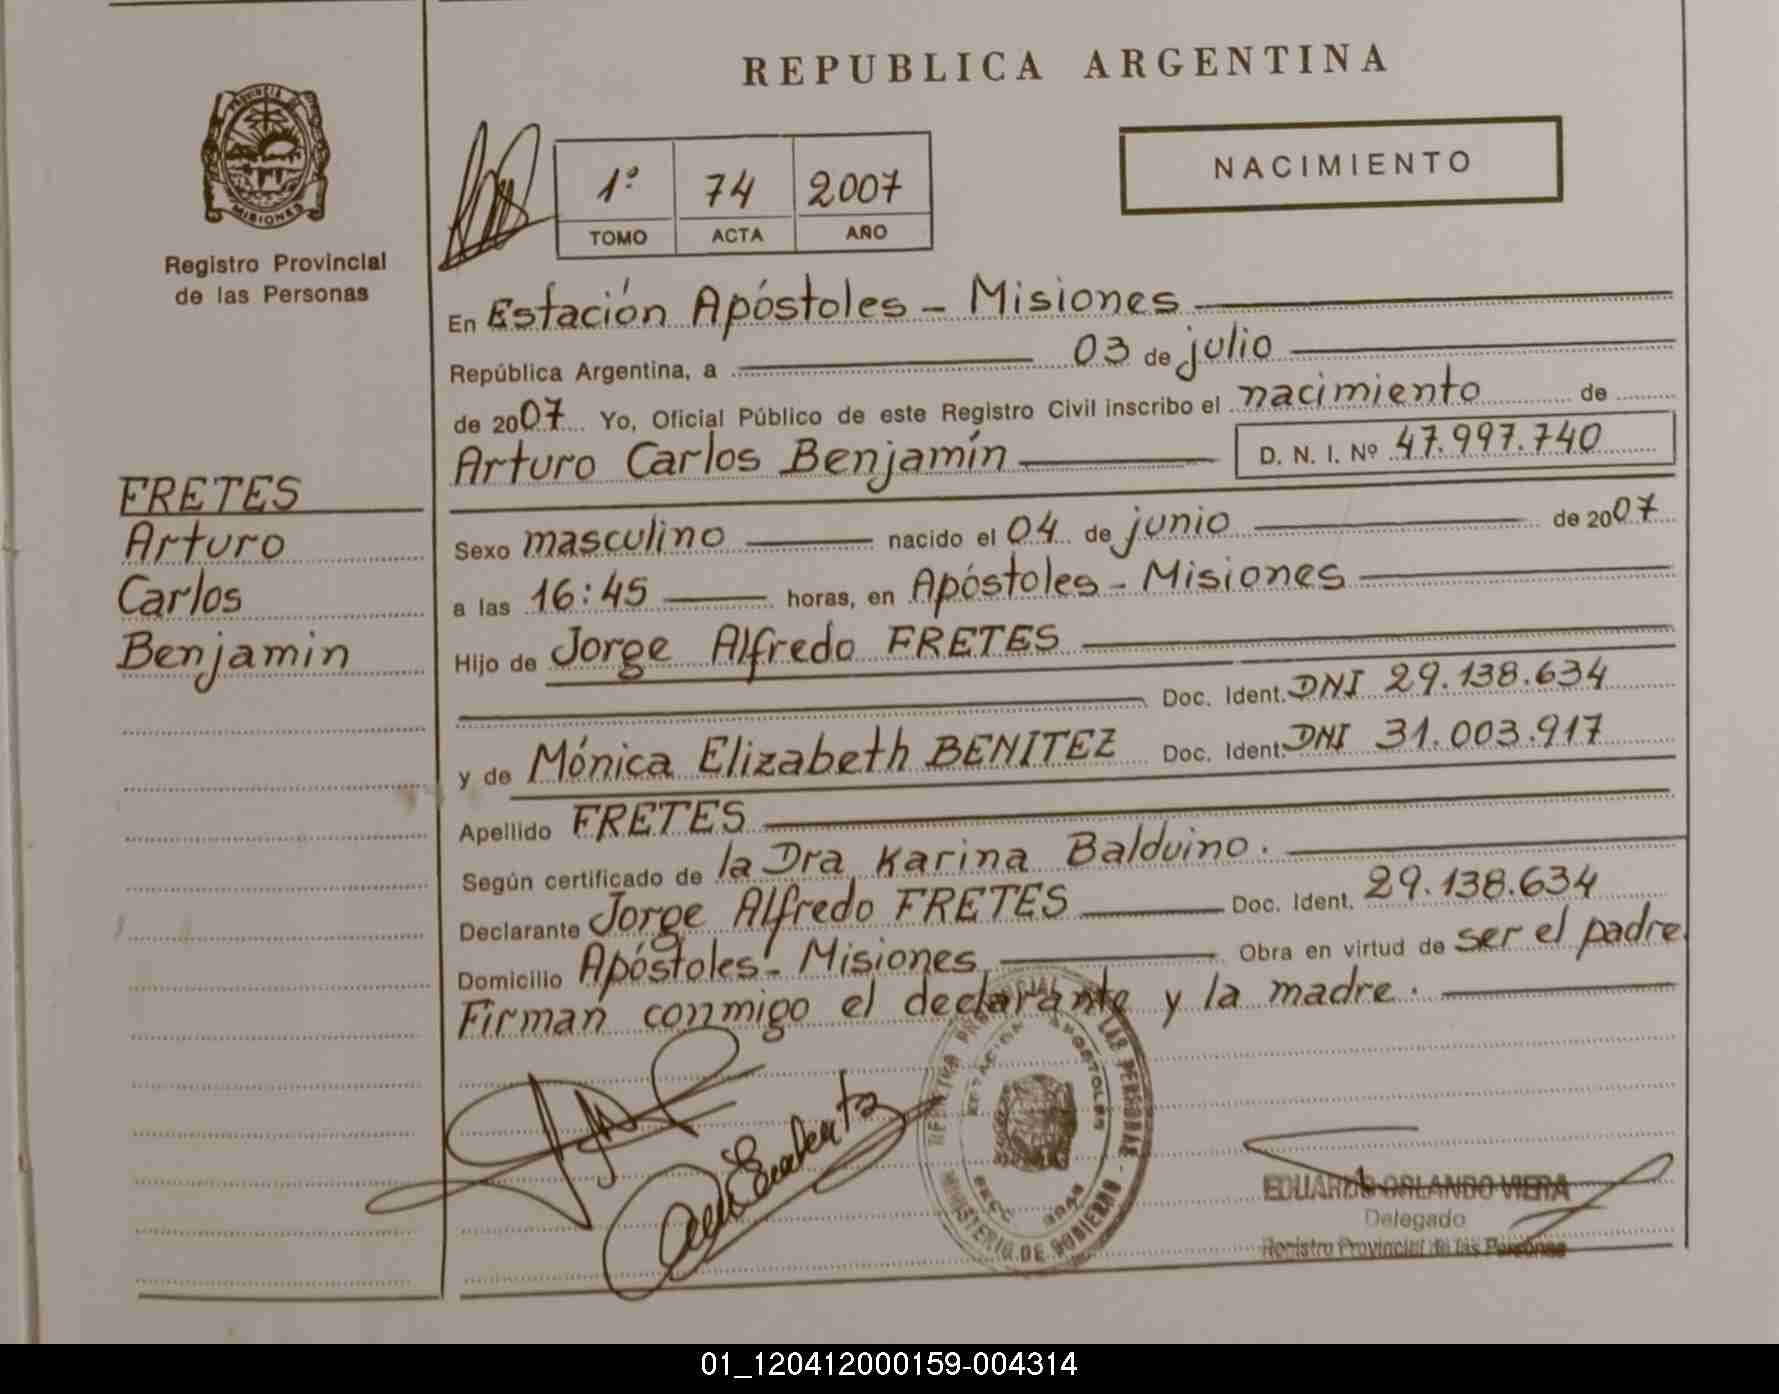 REPUBLICA ARGENTINA
PROVINCIA DE
MISIONES
Registro Provincial
de las Personas
1º 74 2007
TOMO ACTA AÑO
NACIMIENTO
En Estación Apóstoles - Misiones
República Argentina, a 03 de julio
de 2007 Yo, Oficial Público de este Registro Civil inscribo el nacimiento de
Arturo Carlos Benjamín D. N. I. Nº 47.997.740
FRETES
Arturo
Carlos
Benjamin
Sexo masculino nacido el 04 de junio de 2007
a las 16:45 horas, en Apóstoles - Misiones
Hijo de Jorge Alfredo FRETES
Doc. Ident. DNI 29.138.634
y de Mónica Elizabeth BENITEZ Doc. Ident. DNI 31.003.917
Apellido FRETES
Según certificado de la Dra Karina Balduino.
Declarante Jorge Alfredo FRETES Doc. Ident. 29.138.634
Domicilio Apóstoles - Misiones Obra en virtud de ser el padre
Firman conmigo el declarante y la madre.
LAS PERSONAS
MINISTERIO DE GOBIERNO
EDUARDO ORLANDO VIERA
Delegado
Registro Provincial de las Personas
01_120412000159-004314